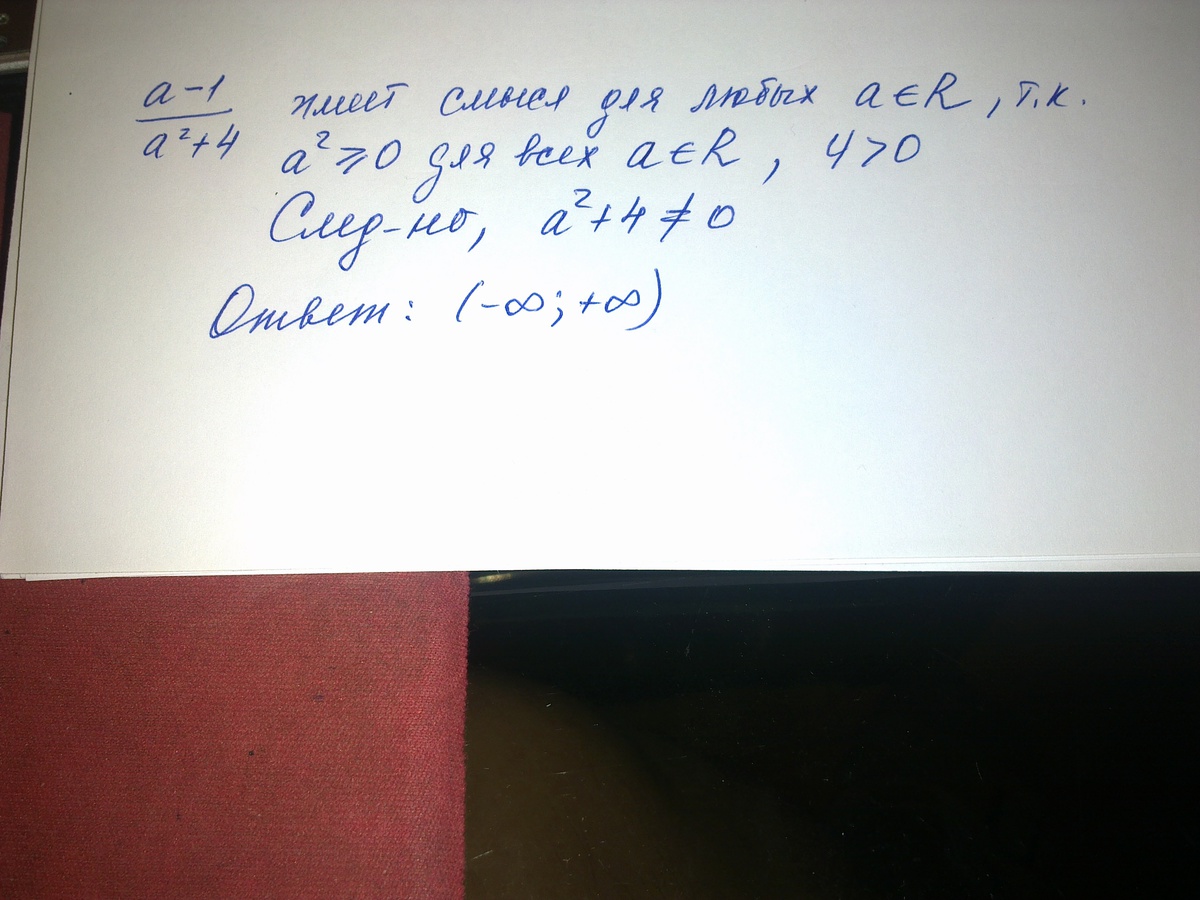 a-1 / a²+4 имеет смысл для любых a∈R, т.к.
a²⩾0 для всех a∈R, 4>0
След-но, a²+4≠0
Ответ: (-∞;+∞)